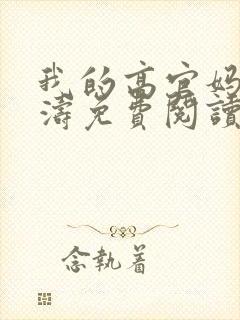 我的高官妈
涛免費閱讀
念執着